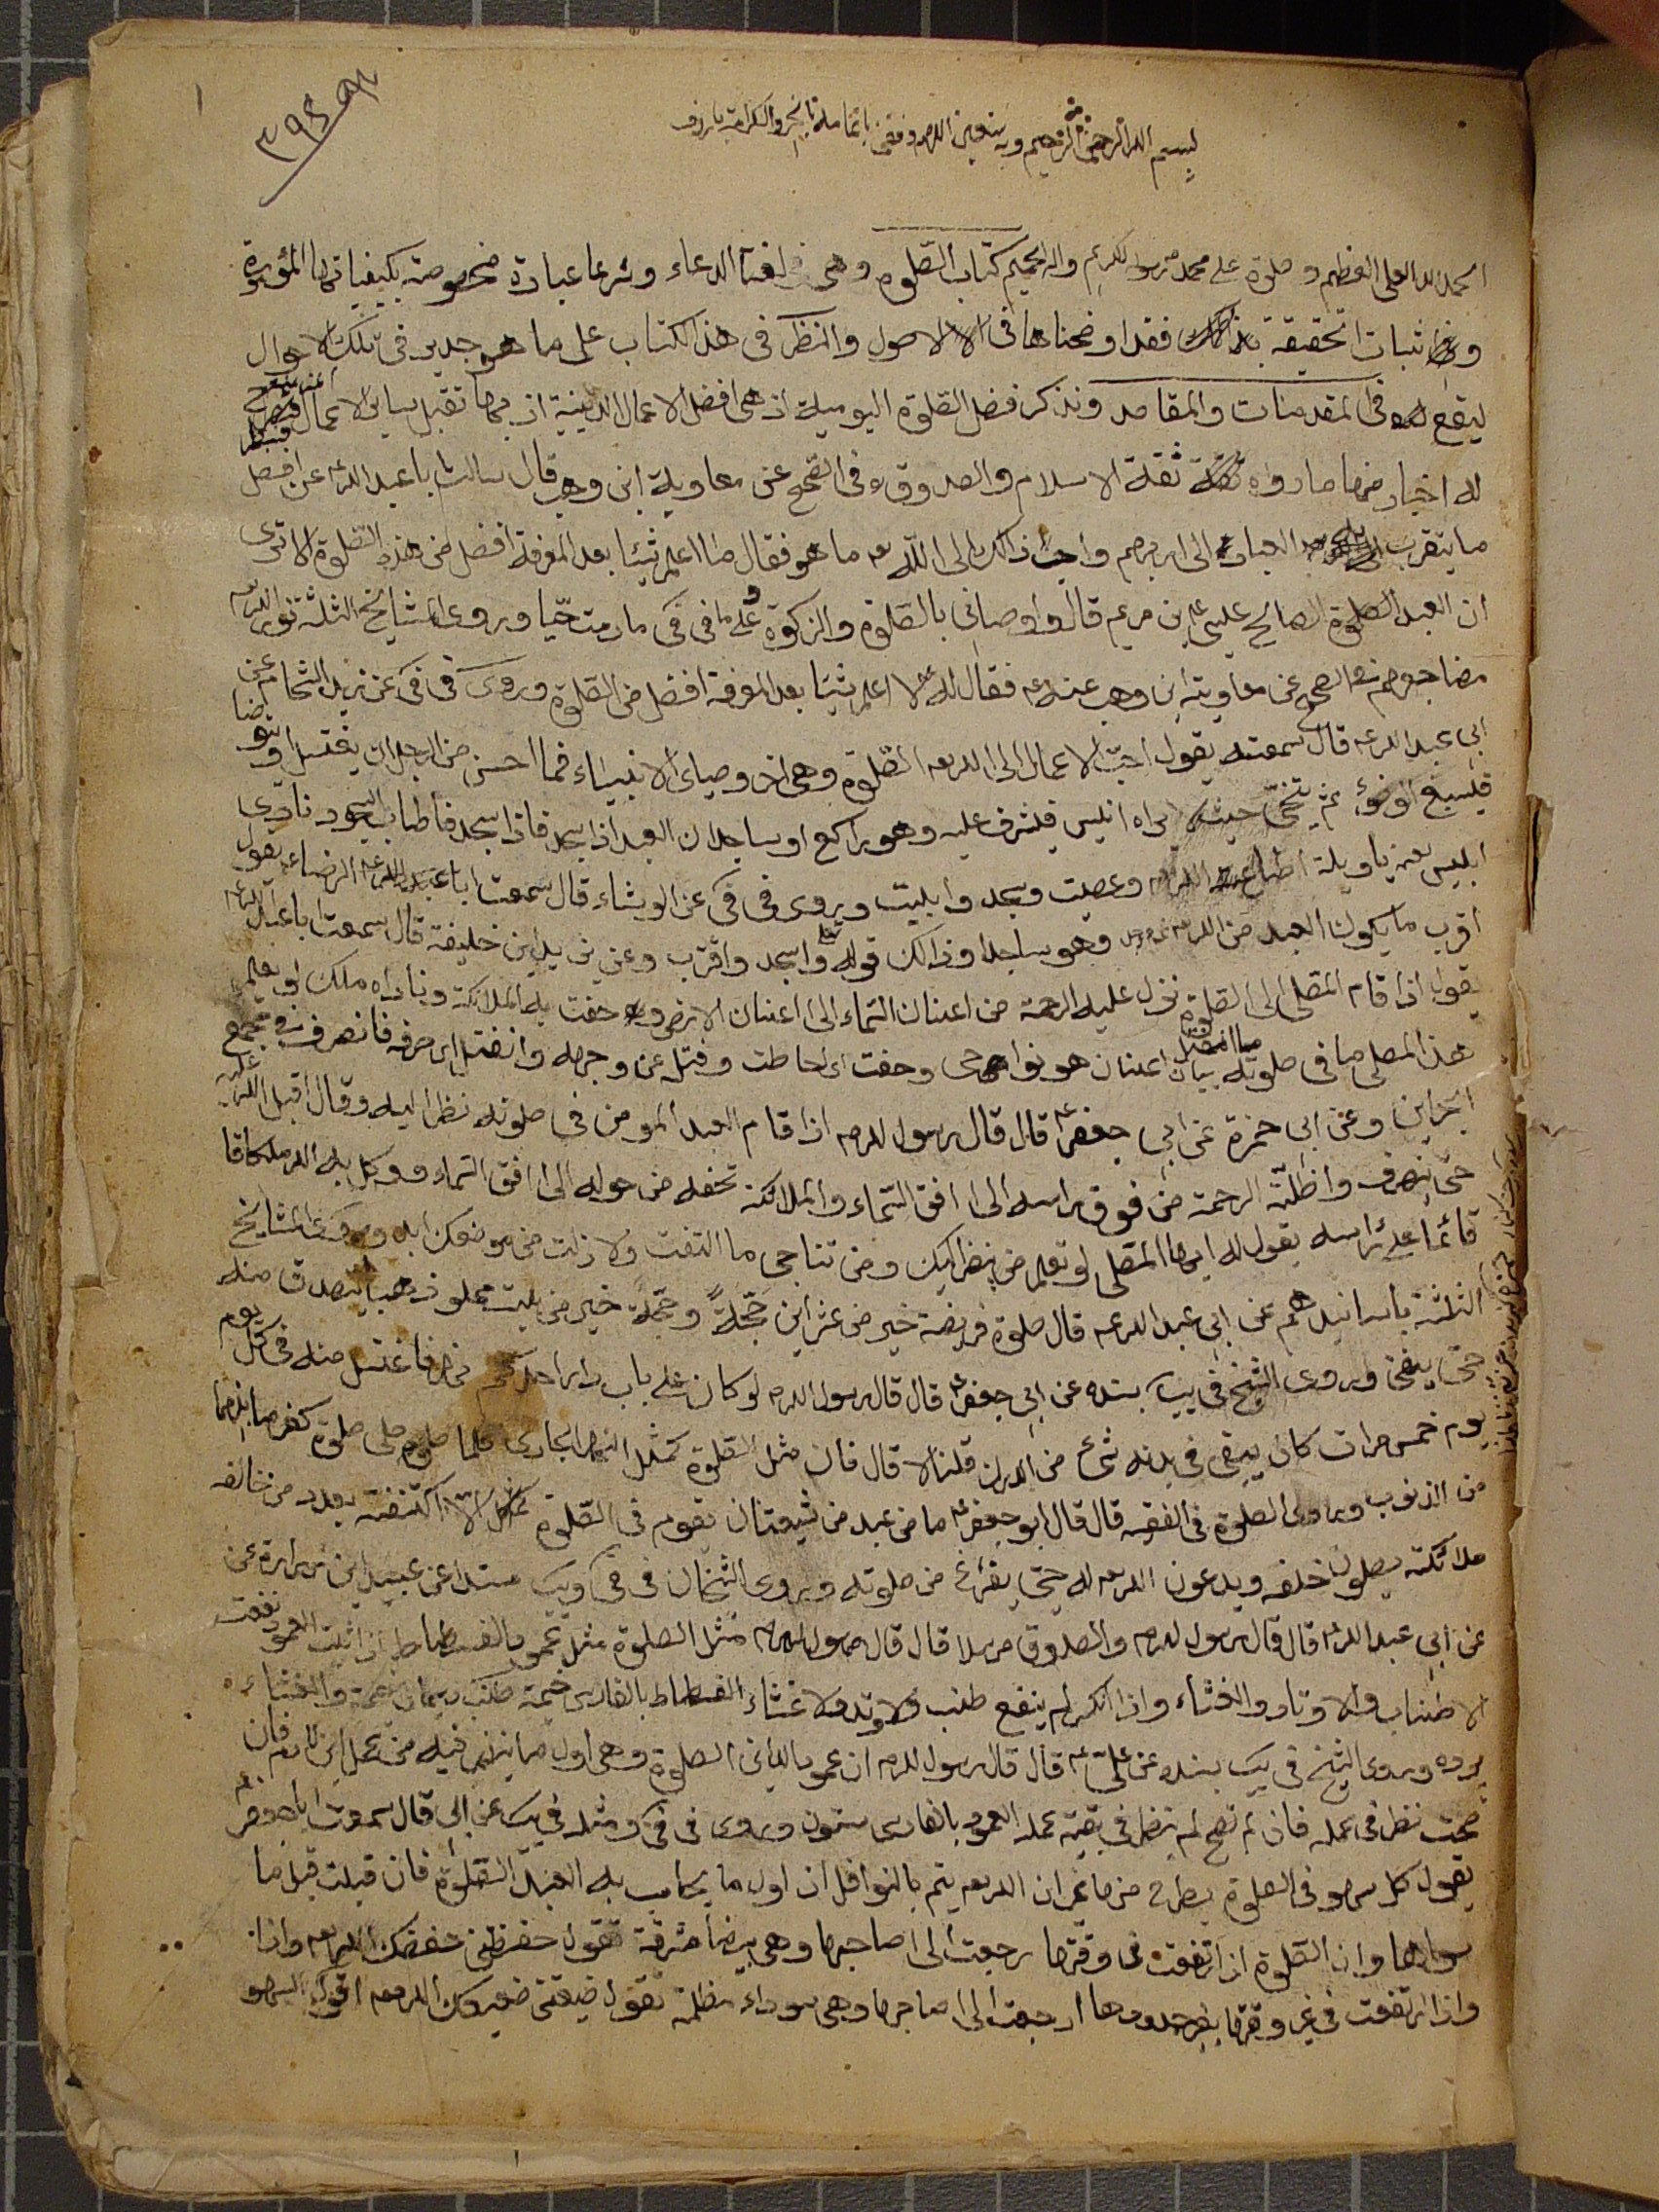 بسم الله الرحمن الرحيم وبه نستعين اللهم وفقنى باتمامه بالخير والكرامة يا رؤف
٣٩٤
١
الحمد لله العلى العظيم و صلوة على محمد رسوله الكريم واله كتاب الصّلوة وهى لغتا الدعاء وشرعا عبادة مخصوصة بكيفياتها المؤثورة
واثبات تحقيقة بذالك فقد اوضحناها فى الاصول والنظر فى هذ الكتاب على ما هو جدير فى تلك الاحوال
ليقع فى المقدمات والمقاصد ونذكر فضل الصّلوة اليومية اذ هى افضل الاعمال الدينية اذ بها تقبل ساير الاعمال
له اخبار منها ما رواه ثقة الاسلام والصدوق فى الصّحيح عن معاوية ابن وهب قال سالت ابا عبد الله ع عن افضل
ما يتقرب العباد الى ربهم واحب ذالك الى اللّه ما هو فقال ما اعلم شيئا بعد المعرفة افضل من هذه الصّلوة الا ترى
ان العبد الصالح عيسى بن مريم قال واوصانى بالصّلوة والزكوة ما دمت حيّا وروى المشايخ الثلثة نور الله
مضاجعهم فى الصحيح عن معاوية ابن وهب عنه ع فقال لا اعلم شيئا بعد المعرفة افضل من الصّلوة وروى فى فى عن زيد الشحام عن
ابى عبد الله ع قال سمعته يقول احبّ الاعمال الى الله الصّلوة وهى اخر وصايا الانبياء فما احسن من الرجل ان يغتسل او يتوضا
فليسبغ الوضوء ثم يتنحّى حيث لا يراه انليس فيشرف عليه وهو راكع او ساجد ان العبد اذا سجد فاذا سجد فاطاب السجود نادى
ابليس يا ويلة اطاع وعصيت وسجد وابليت ويروى فى فى عن الوشاء قال سمعت الرضاء يقول
اقرب ما يكون العبد من الله وهو ساجدا وذالك قوله واسجد واقترب وعن يزيد بن خليفة قال سمعت ابا عبد الله ع
يقول اذا قام المصلى الى الصّلوة نزل عليه الرحمة من اعنان السّماء الى اعنان الارض وحفت به الملائكة وناداه ملك لو يعلم
هذ المصلى ما فى صلوته ما انفتل بيان اعنان هو نواحى وحفت اى احاطت وفتل عن وجهه وانفتل اى صرفه فانصرف فى مجمع
البحرين وعن ابى حمزة عن ابى جعفر ع قال قال رسول الله ص اذا قام العبد المومن فى صلوته نظر اليه وقال اقبل الله عليه
حتى ينصرف واظلّته الرحمة من فوق راسه الى افق السّماء والملائكة تحفه من حوله الى افق السّماء ووكل به الله ملكا
قائما على راسه يقول له ايها المصلى لو تعلم من ينظر اليك ومن تناجى ما التفت ولا زلت من موضعك ابدا ويروى المشايخ
الثلثة باسانيدهم عن ابى عبد الله ع قال صلوة فريضة خير من عشرين حجّة وحجّة خير من بيت مملو ذهب يتصدق منه
حتى يفنى وروى الشيخ فى يب بسنده عن ابى جعفر ع قال قال رسول الله ص لو كان على باب دار احدكم نهر فاغتسل منه فى كل يوم
يوم خمس مرات كان يبقى فى بدنه شئ من الدرن قلنا لا قال فان مثل الصّلوة كمثل النهر الجارى كلما صلى صلوة كفر ما بينهما
من الذنوب وروى الصلوة فى الفقيه قال قال ابو جعفر ع ما من عبد من شيعتنا يقوم فى الصّلوة الا اكتنفته بعدد من خالفه
ملائكة يصلون خلفه ويدعون الله له حتى يفرغ من صلوته ويروى الشيخان فى فى ويب مسندا عن عبيد ابن زرارة عن
عن ابى عبد الله ع قال قال رسول الله ص والصدوق مرسلا قال قال رسول الله ص مثل الصلوة مثل عمود الفسطاط اذا ثبت العمود نفعت
الاطناب والاوتاد والغشاء واذا انكسر لم ينفع طنب ولا وتد ولا غشاء الفسطاط بالفارسى خيمة طنب والغشاء
پرده ويروى الشيخ فى يب بسنده عن علىّ ع قال قال رسول الله ص ان عمود الدين الصلوة وهى اول ما ينظر فيه من عمل ابن ادم فان
صحت نظر فى عمله فان لم تصح لم ينظر فى بقية عمله العمود بالفارسى ستون ويروى فى فى ومثله فى يب عن ابى قال سمعت ابا جعفر ع
يقول كل سهو فى الصلوة يطرح منها غير ان الله يتم بالنوافل ان اول ما يحاسب به العبد الصّلوة فان قبلت قبل ما
سواها وان الصّلوة اذا ارتفعت فى وقتها رجعت الى صاحبها وهى بيضا مشرقة تقول حفظتنى حفظك الله واذا
واذا ارتفعت فى غير وقتها بغير حدودها ارجعت الى صاحبها وهى سوداء مظلمة تقول ضيعتنى ضيعك الله اقول السهو